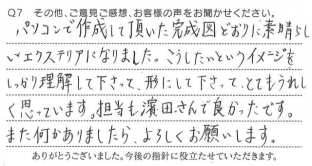 Q7 その他、ご意見ご感想、お客様の声をお聞かせください。
パソコンで作成して頂いた完成図どおりに素晴らし
いエクステリアになりました。こうしたいというイメージを
しっかり理解して下さって、形にして下さって、とてもうれし
く思っています。担当も濱田さんで良かったです。
また何かありましたら、よろしくお願いします。
ありがとうございました。今後の指針に役立たせていただきます。